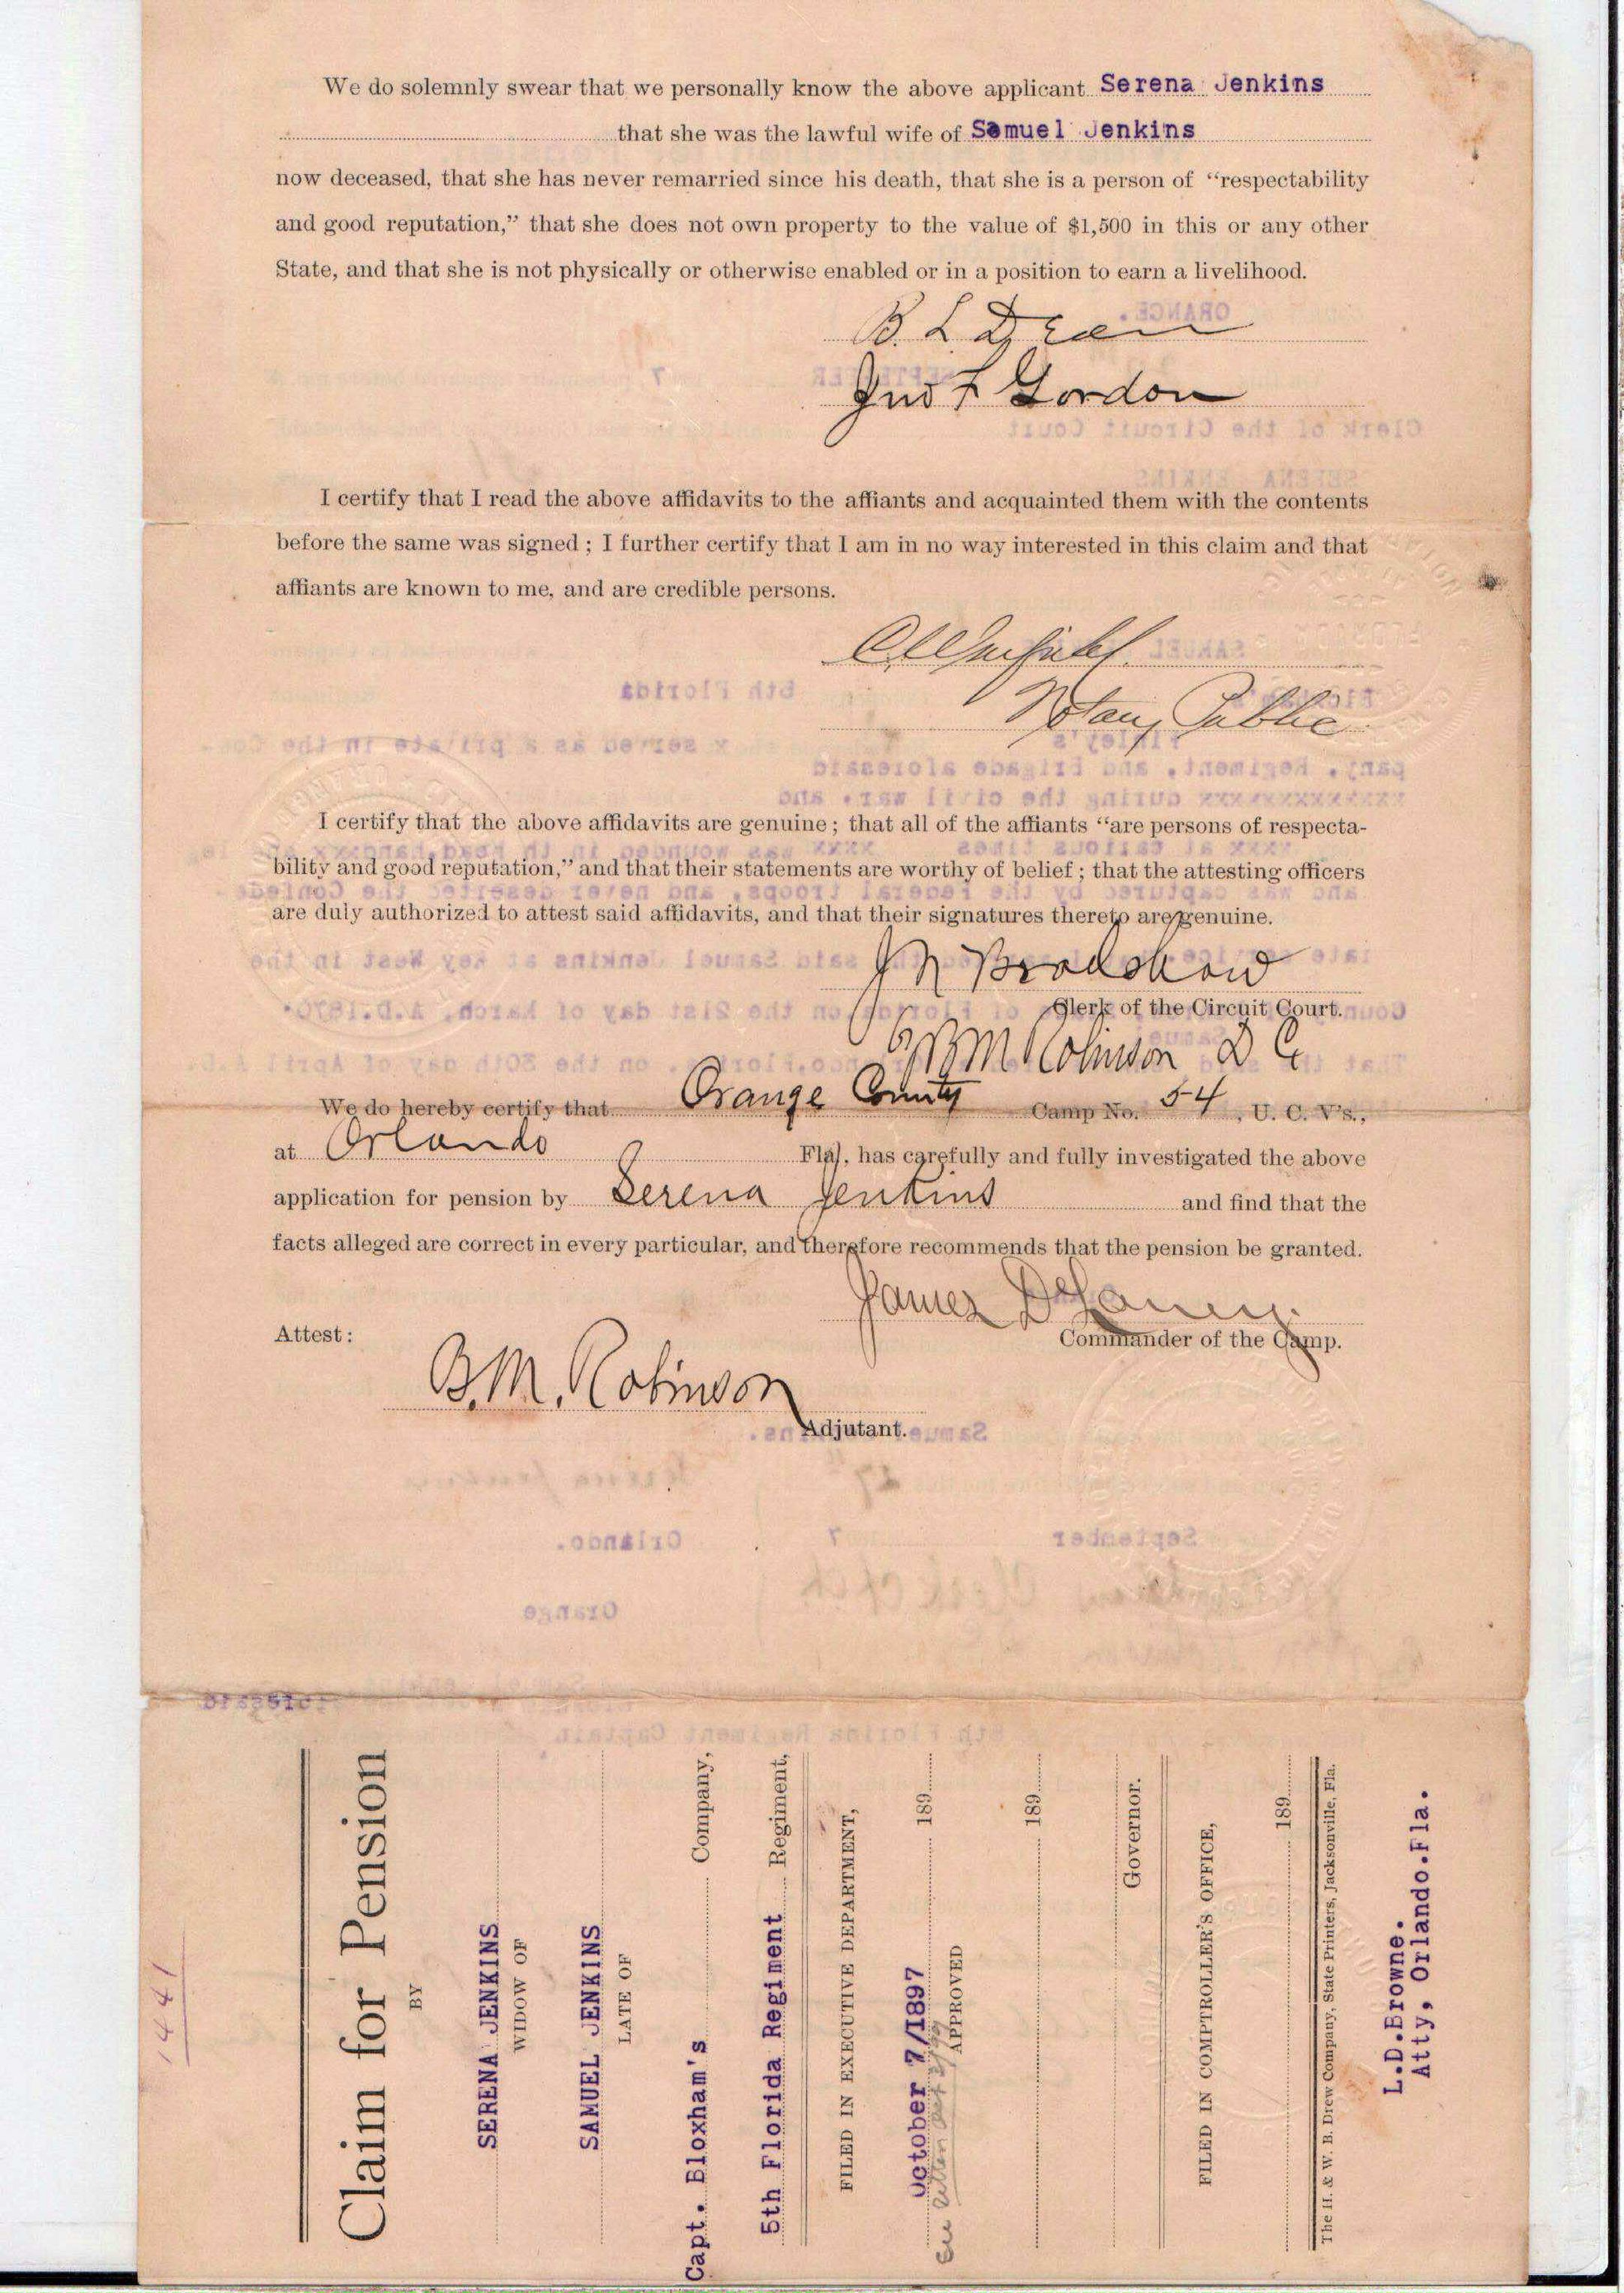 We do solemnly swear that we personally know the above applicant Serena Jenkins
that she was the lawful wife of Samuel Jenkins
now deceased, that she has never remarried since his death, that she is a person of “respectability
and good reputation,” that she does not own property to the value of $1,500 in this or any other
State, and that she is not physically or otherwise enabled or in a position to earn a livelihood.
B. L. Dean
Jno F Gordon
I certify that I read the above affidavits to the affiants and acquainted them with the contents
before the same was signed; I further certify that I am in no way interested in this claim and that
affiants are known to me, and are credible persons.
Notary Public
I certify that the above affidavits are genuine; that all of the affiants “are persons of respecta-
bility and good reputation,” and that their statements are worthy of belief; that the attesting officers
are duly authorized to attest said affidavits, and that their signatures thereto are genuine.
J N Bradshaw
Clerk of the Circuit Court.
By B M Robinson D C
We do hereby certify that Orange County Camp No. 54, U. C. V's.,
at Orlando Fla., has carefully and fully investigated the above
application for pension by Serena Jenkins and find that the
facts alleged are correct in every particular, and therefore recommends that the pension be granted.
James DeLaney
Commander of the Camp.
Attest:
B. M. Robinson
Adjutant.
1441
Claim for Pension
BY
SERENA JENKINS
WIDOW OF
SAMUEL JENKINS
LATE OF
Capt. Bloxham's Company,
5th Florida Regiment Regiment,
FILED IN EXECUTIVE DEPARTMENT,
October 7/1897 189
APPROVED
189
Governor.
FILED IN COMPTROLLER'S OFFICE,
189
The H. & W. B. Drew Company, State Printers, Jacksonville, Fla.
L.D.Browne.
Atty, Orlando.Fla.